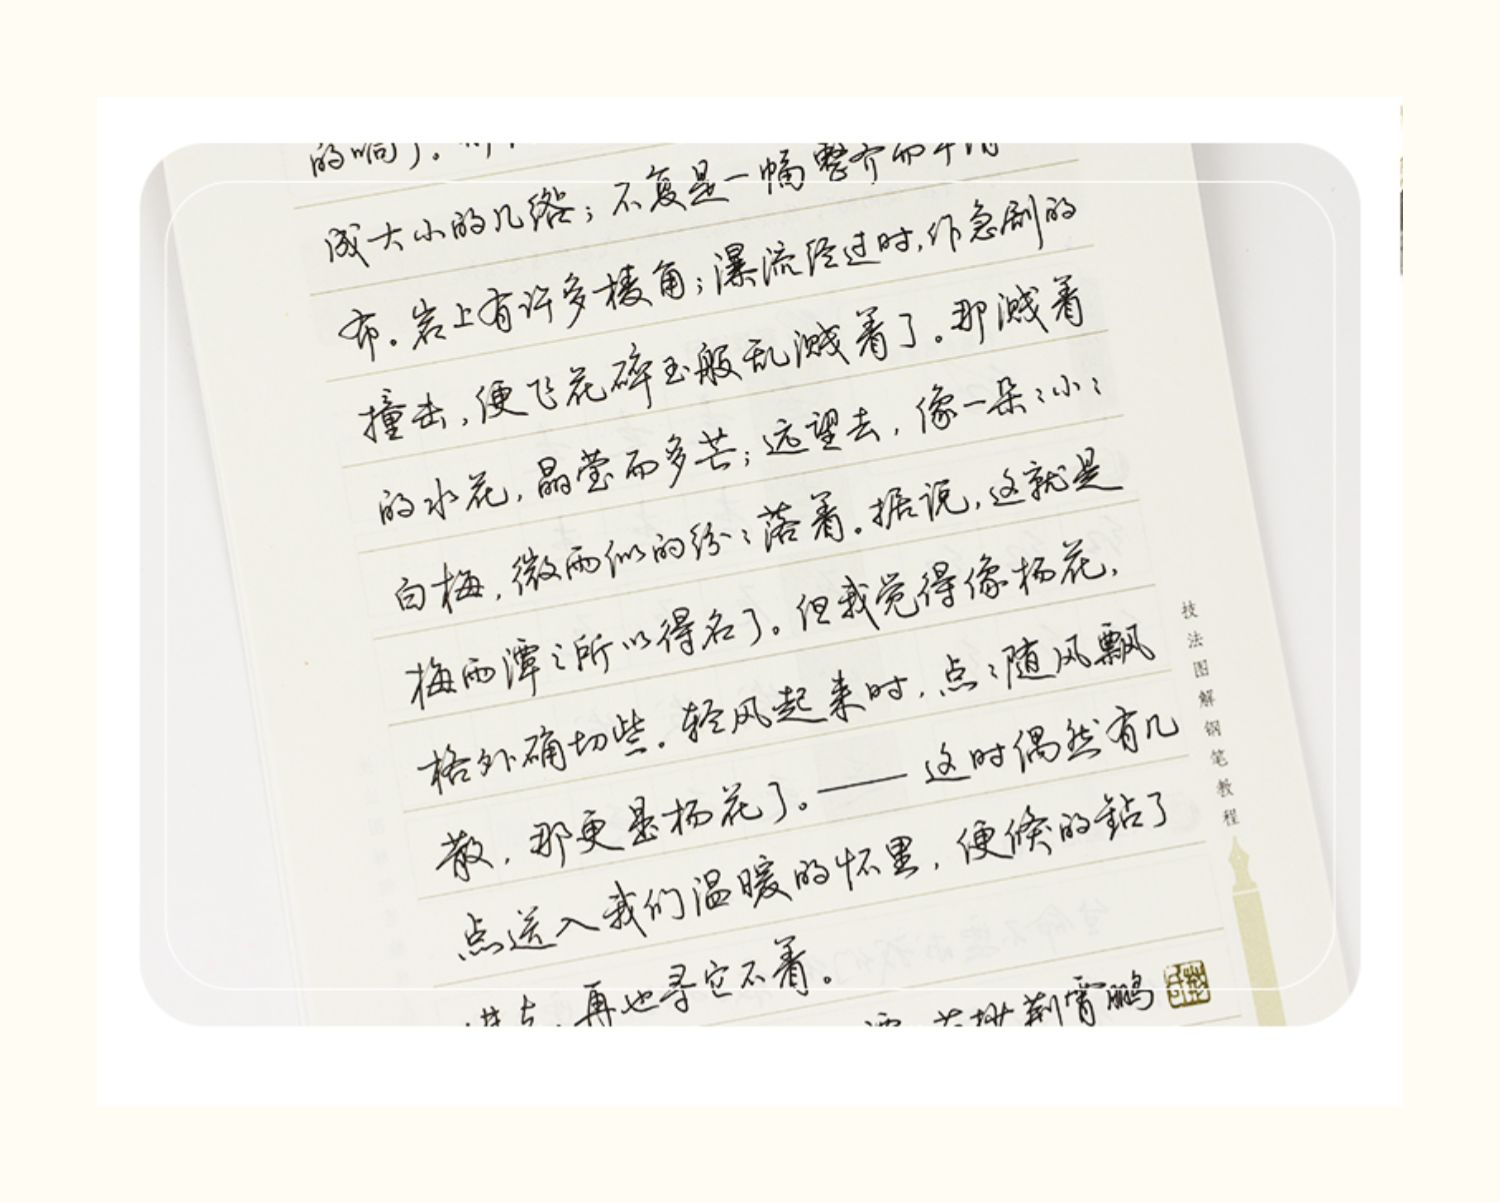 的响了。
成大小的几绺；不复是一幅整齐而平滑
布。岩上有许多棱角；瀑流经过时，作急剧的
撞击，便飞花碎玉般乱溅着了。那溅着
的水花，晶莹而多芒；远望去，像一朵〻小〻
白梅，微雨似的纷〻落着。据说，这就是
梅雨潭之所以得名了。但我觉得像杨花，
格外确切些。轻风起来时，点〻随风飘
散，那更是杨花了。——这时偶然有几
点送入我们温暖的怀里，便倏的鉆了
进去，再也寻它不着。
荆霄鹏
技法图解钢笔教程